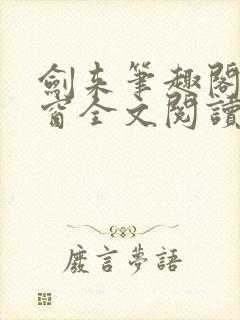 劍来筆趣閣
窗全文閱讀
廢言夢語